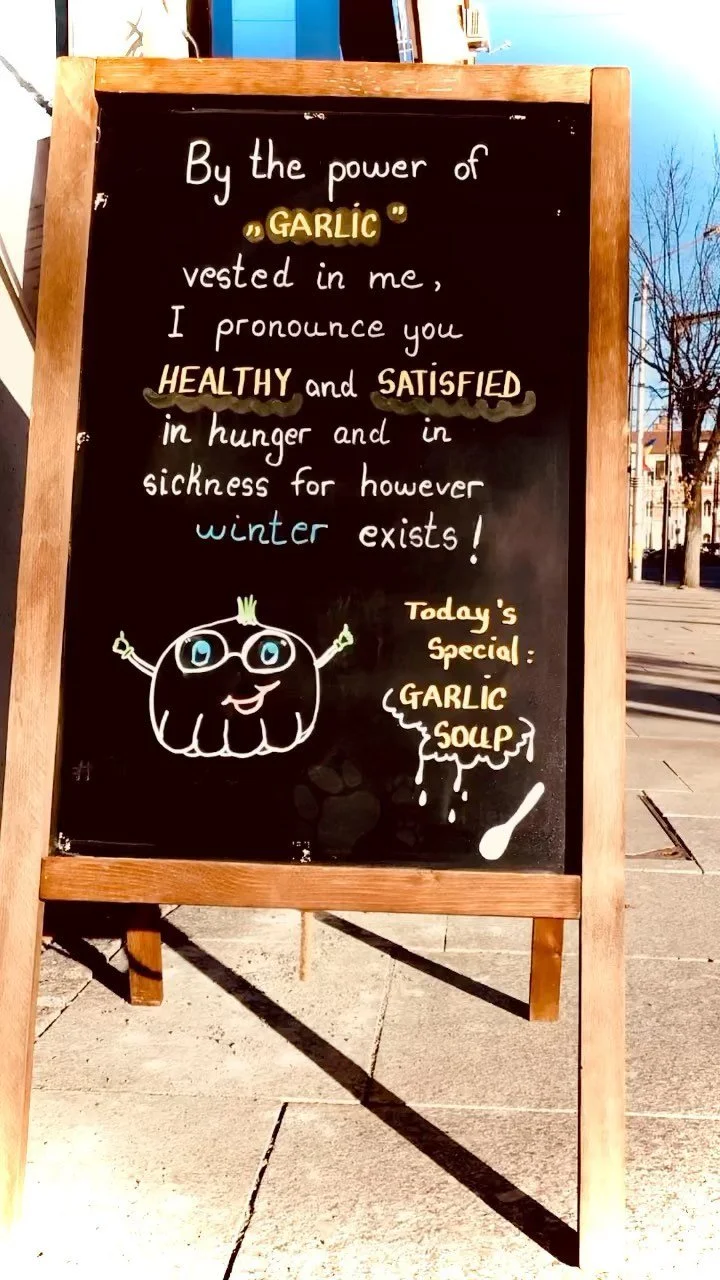 By the power of
„GARLIC"
vested in me,
I pronounce you
HEALTHY and SATISFIED
in hunger and in
sickness for however
winter exists!
Today's
Special:
GARLIC
SOUP